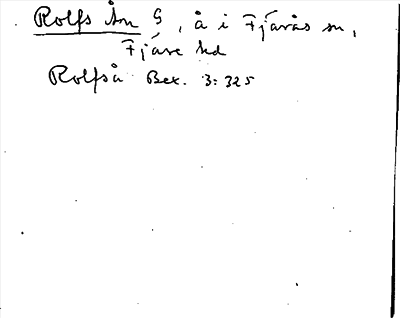 Rolfs Ån G, å i Fjärås sn,
Fjäre hd
Rolfså Bex. 3:325